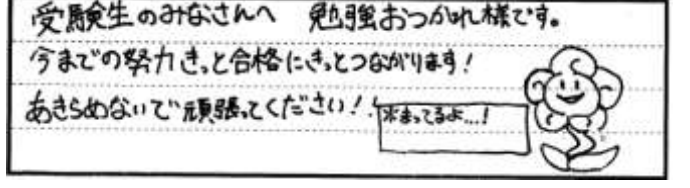 受験生のみなさんへ 勉強おつかれ様です。
今までの努力きっと合格にきっとつながります!
あきらめないで頑張ってください!!
まってるよ…!